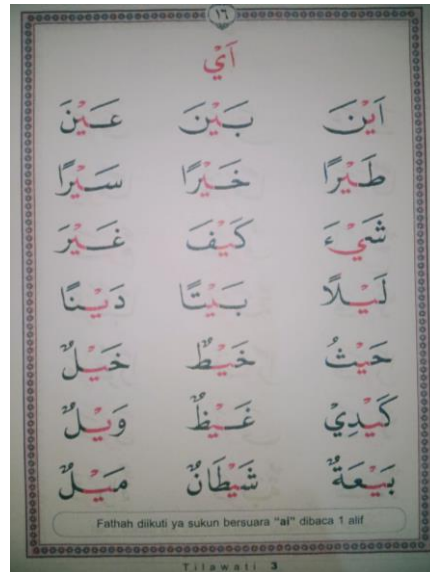 ١٦
اَيْ
اَيْنَ بَيْنَ عَيْنَ
طَيْرًا خَيْرًا سَيْرًا
شَيْءَ كَيْفَ غَيْرَ
لَيْلًا بَيْتًا دَيْنًا
حَيْثُ خَيْطٌ خَيْلٌ
كَيْدِيْ غَيْظٌ وَيْلٌ
بَيْعَةٌ شَيْطَانٌ مَيْلٌ
Fathah diikuti ya sukun bersuara "ai" dibaca 1 alif
Tilawati 3